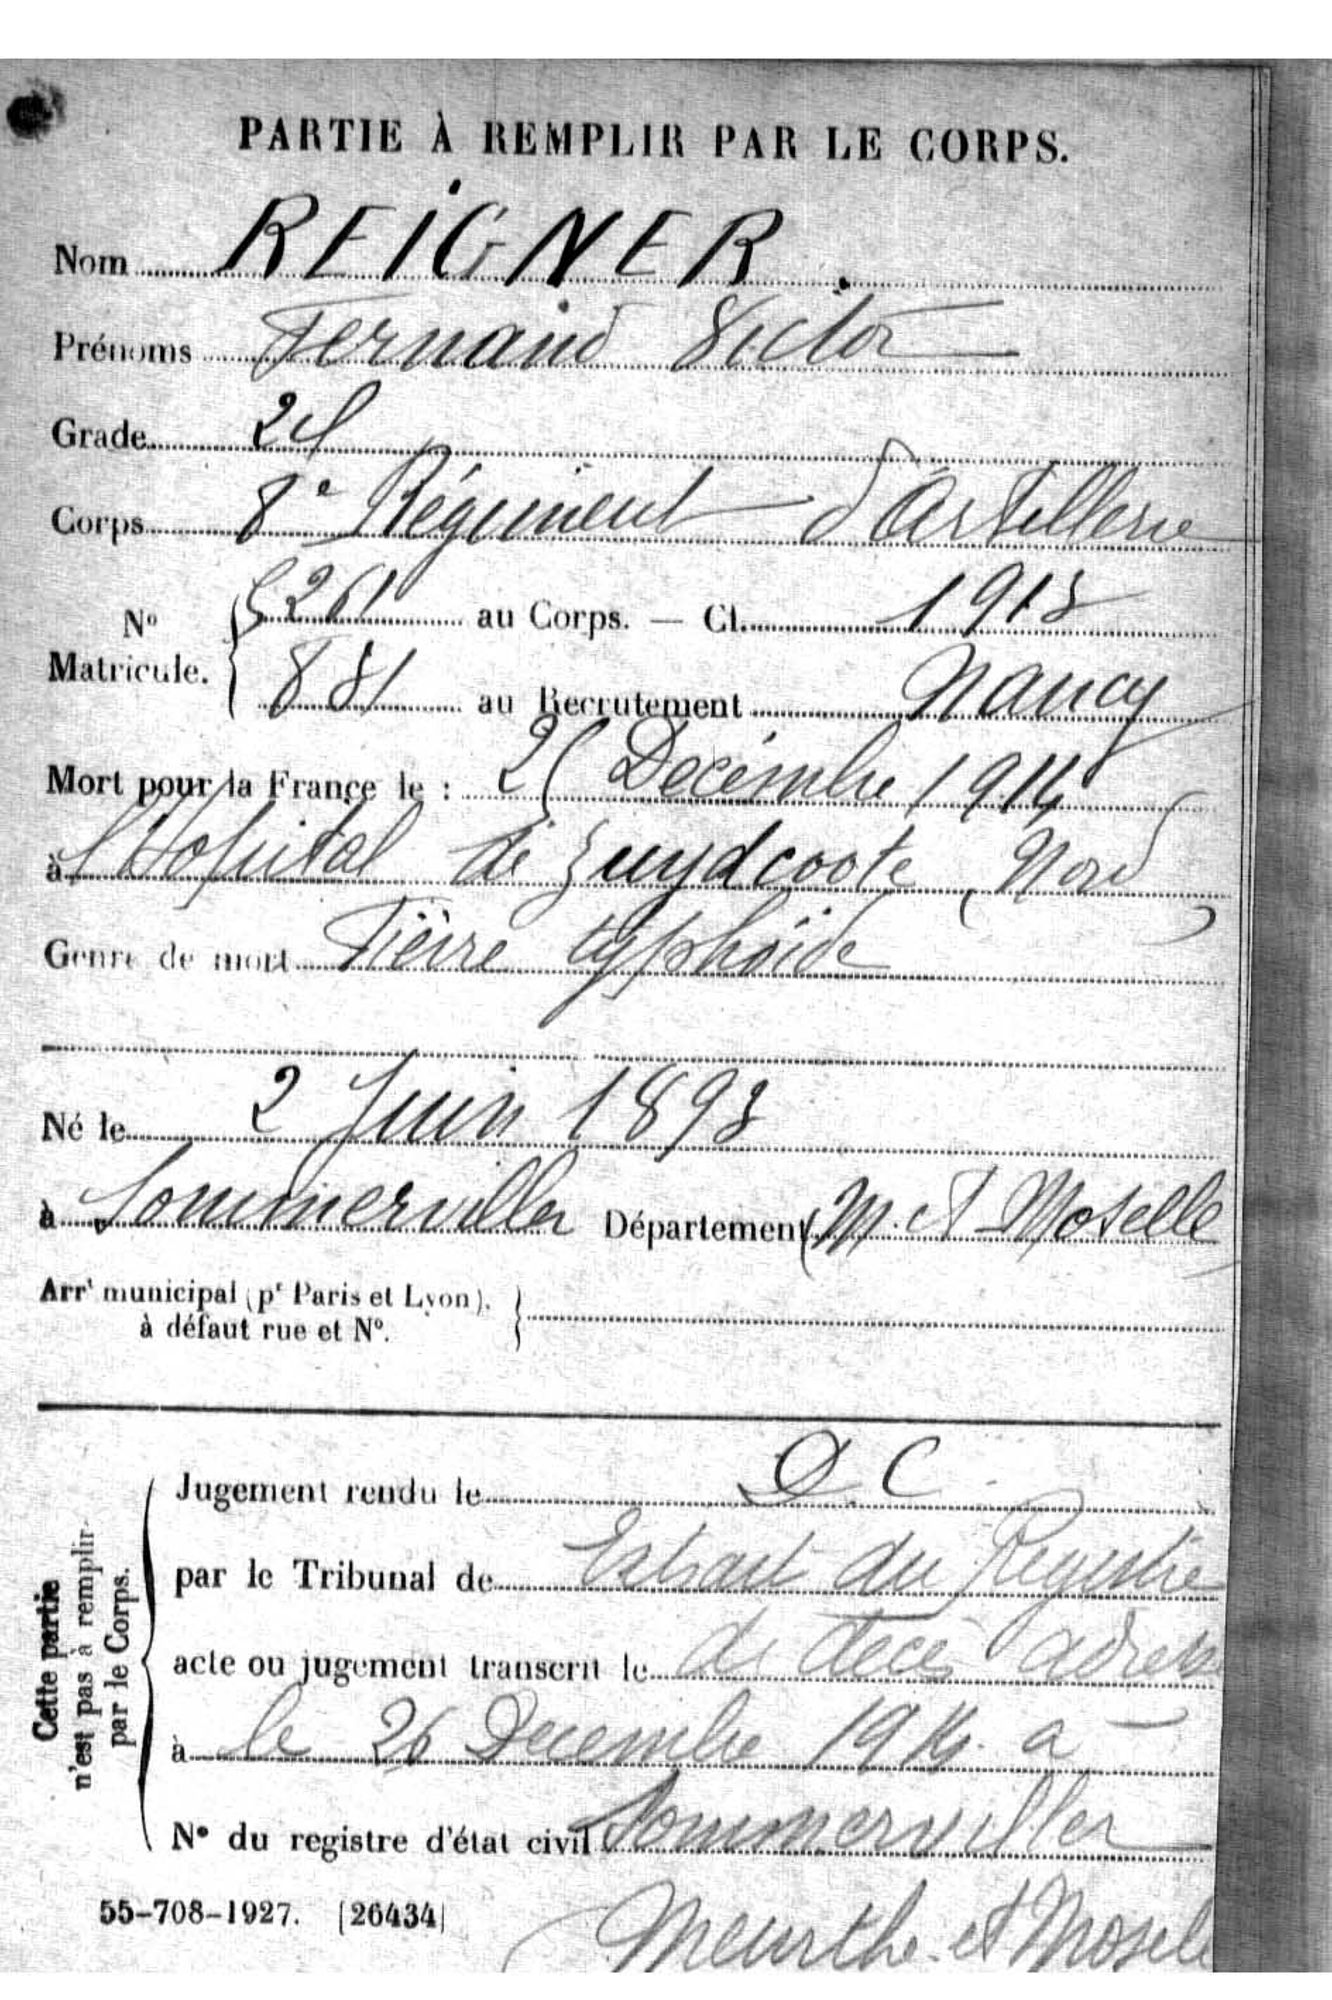 PARTIE À REMPLIR PAR LE CORPS.
Nom REIGNER.
Prénoms Fernand Victor
Grade
Corps 8e Régiment d'Artillerie
No Matricule. { 5261 au Corps. — Cl. 1913
881 au Recrutement Nancy
Mort pour la France le : 25 Décembre 1914
à l'Hopital de Zuydcoote (Nord)
Genre de mort Fièvre typhoïde
Né le 2 Juin 1893
à Sommerviller Département M. et Moselle
Arrt municipal (pr Paris et Lyon), à défaut rue et No. }
Cette partie n'est pas à remplir par le Corps.
Jugement rendu le D.C
par le Tribunal de Extrait du Registre
acte ou jugement transcrit le de décès adressé
à le 26 Decembre 1914. a
No du registre d'état civil Sommerviller
Meurthe-et Mosel
55-708-1927. [26434]